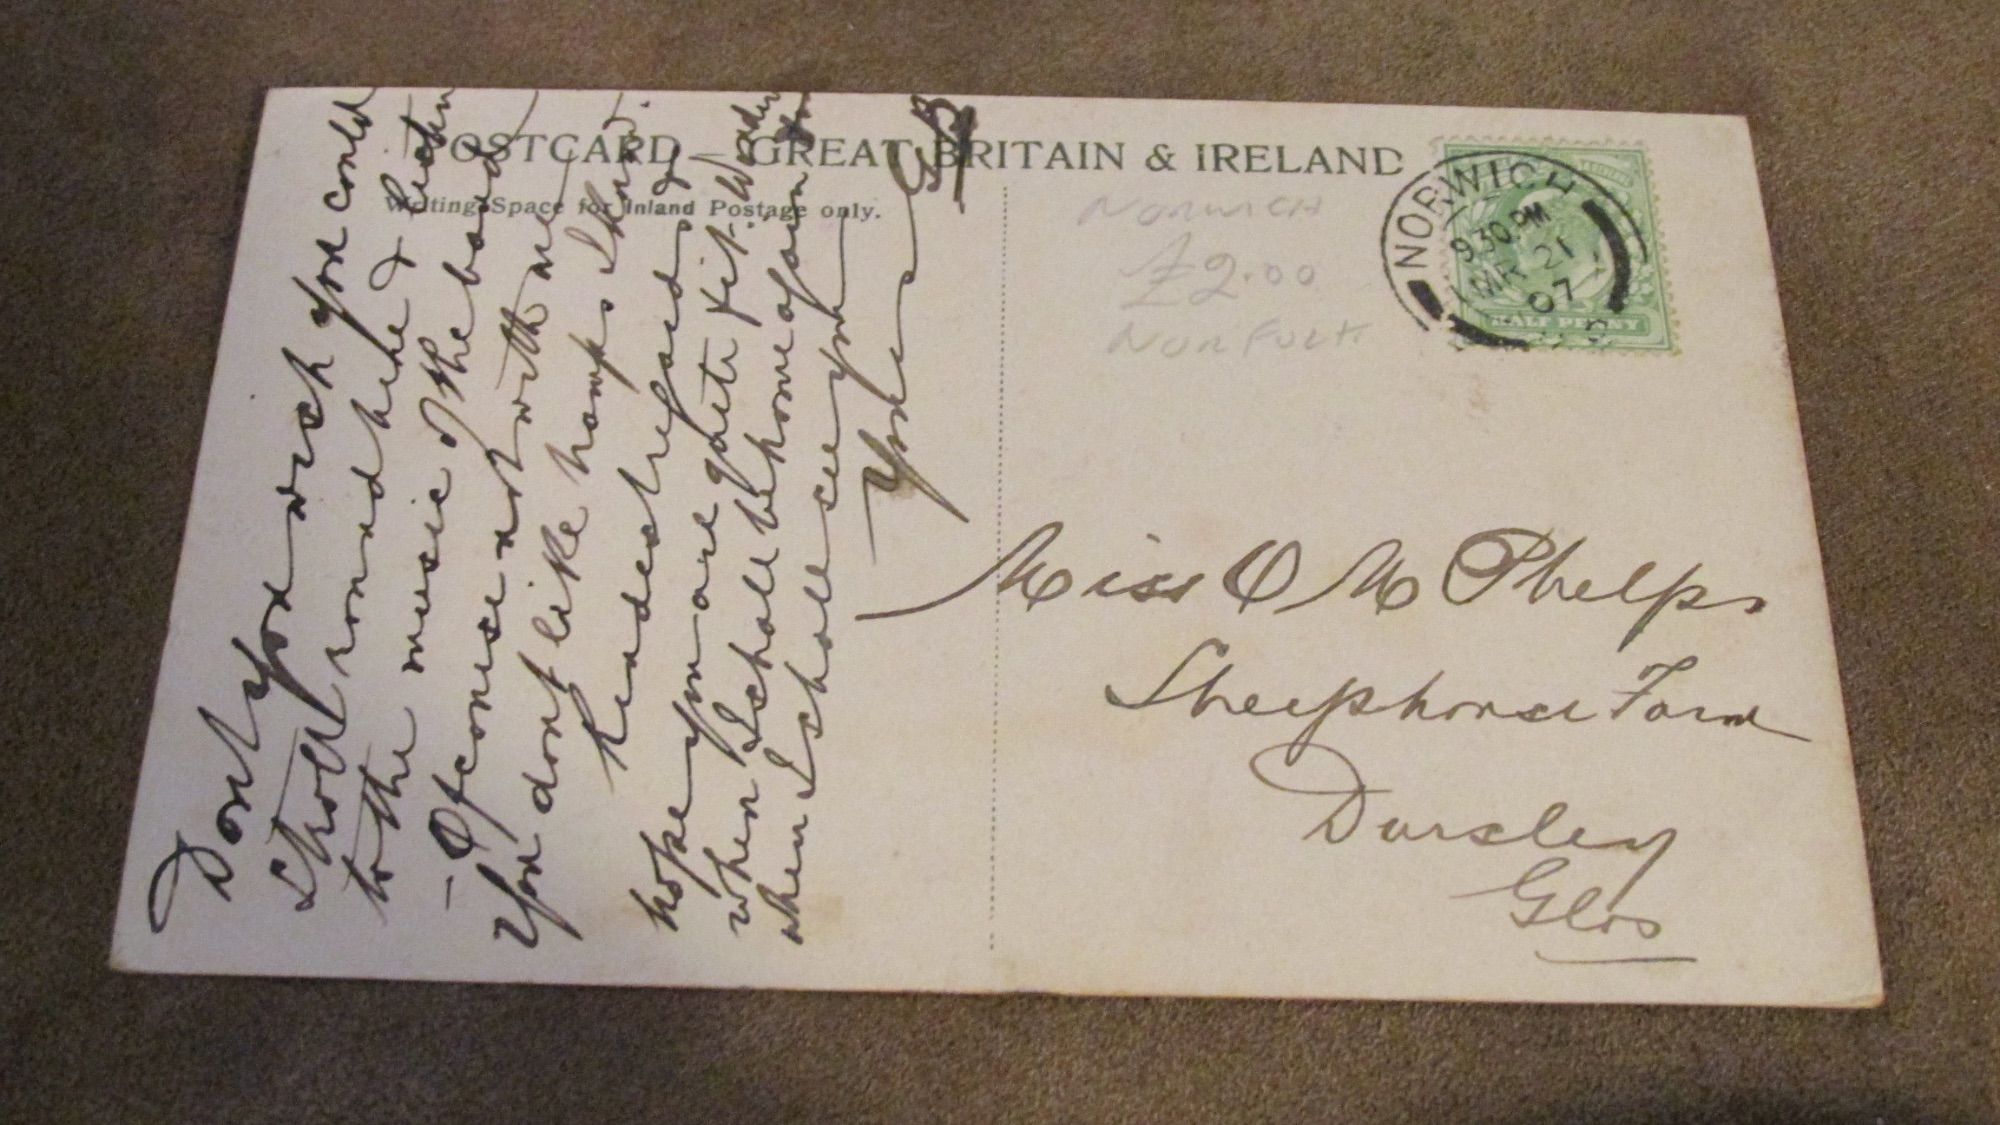 POSTCARD – GREAT BRITAIN & IRELAND
Writing Space for Inland Postage only.
Dont you wish you could
stroll round here & listen
to the music of the band
Of course not with me
You dont like tramps I know.
Kindest regards
hope you are quite fit. Wonder
when I shall be home again
when I shall see you
Yours
Norwich
£2.00
Norfolk
NORWICH
9.30.PM
MR 21
07
HALF PENNY
Miss O M Phelps
Sheephouse Farm
Dursley
Glos